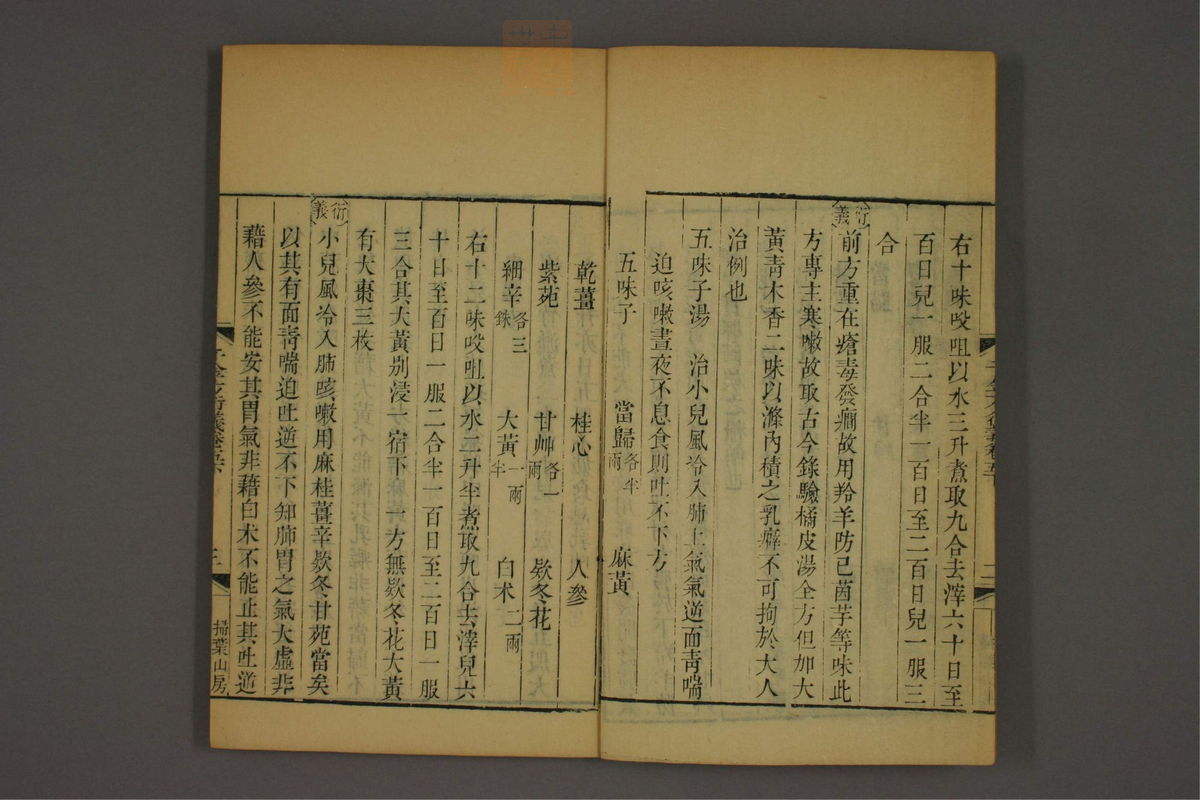 右十味㕮咀以水三升煮取九合去滓六十日至
百日兒一服二合半一百日至二百日兒一服三
合
衍義
前方重在瘡毒發癎故用羚羊防己茵芋等味此
方專主寒嗽故取古今錄驗橘皮湯全方但加大
黃青木香二味以滌內積之乳癖不可拘於大人
治例也
五味子湯 治小兒風冷入肺上氣氣逆而靑喘
迫咳嗽晝夜不息食則吐不下方
五味子 當歸各半兩 麻黃
乾薑 桂心 人參
紫苑 甘艸各一兩 欵冬花
細辛各三銖 大黃一兩半 白术二兩
右十二味㕮咀以水二升半煮取九合去滓兒六
十日至百日一服二合半一百日至二百日一服
三合其大黃別浸一宿下 一方無欵冬花大黃
有大棗三枚
衍義
小兒風冷入肺咳嗽用麻桂薑辛欵冬甘苑當矣
以其有面靑喘迫吐逆不下知肺胃之氣大虛非
藉人參不能安其胃氣非藉白术不能止其吐逆
三
掃葉山房